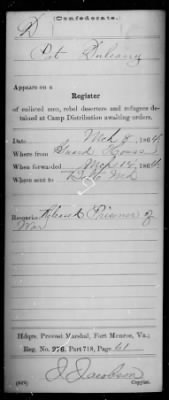 (Confederate.)
D
Pat Duleany
Appears on a
Register
of enlisted men, rebel deserters and refugees detained at Camp Distribution awaiting orders.
Date Mch 8, 1864
Where from Guard House
When forwarded Mch 12, 1864
Where sent to Balto Md
Remarks: Prisoner of
War
Hdqrs. Provost Marshal, Fort Monroe, Va.;
Reg. No. 976, Part 718, Page 61
J. Jacobson
Copyist.